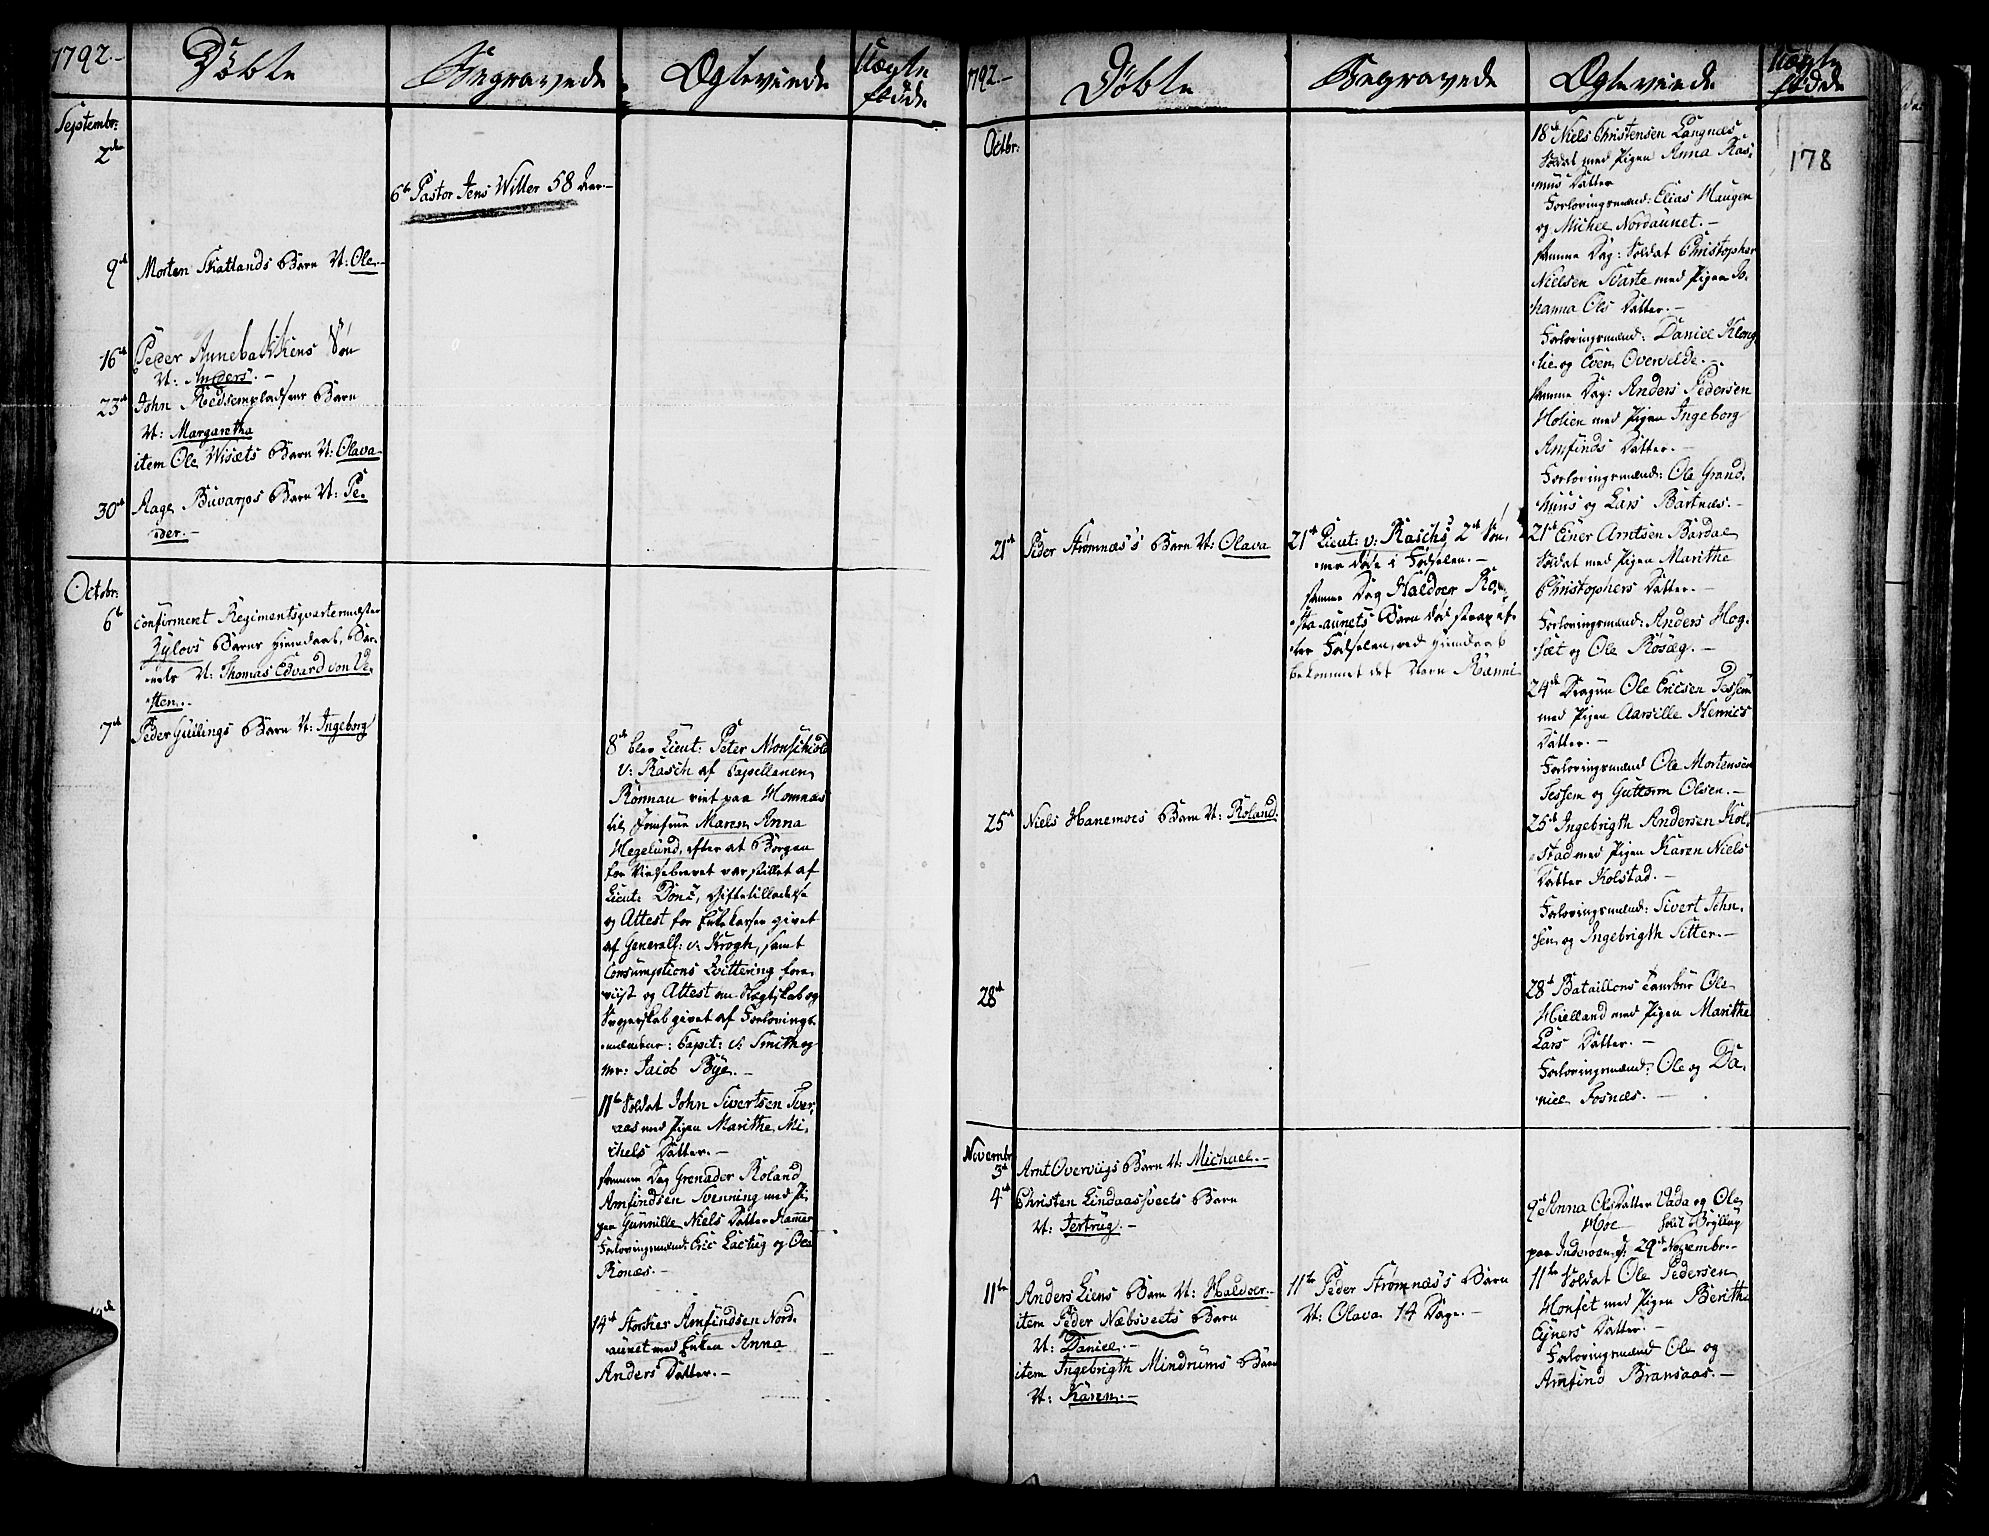 1792.-
Döbte
Begravede
Ægteviede
Uægte
födde
Septembr:
2den
6te Pastor Jens Willer 58 Aar.-
9de
Morten Skatlands Barn N: Ole.-
16de
Peder Annebakkens Sön
N: Anders.-
23de
John Rödsempladsens Barn
N: Margaretha
item Ole Wisets Barn N: Olava
30de
Aage Buvarpos Barn N: Pe-
der.-
Octobr:
6te
confirmert Regimentsqvartermester
Zylovs Barns Hiemdaab, Bar-
nets N: Thomas Edvard von We-
sten.-
7de
Peder Gulings Barn N: Ingeborg
8de blev Lieut: Peter Monschiold
v: Rasch af Capellanen
Rönnau viet paa Homnæs
til Jomfrue Maren Anna
Hegelund, efter at Borgen
for Vielsebrevet var stillet af
Lieut: Dons, Giftetilladelse
og Attest for Enkekassen givet
af Generall: v: Krogh, samt
Consumptions Qvittering fore-
viist og Attest om Slægtskab og
Svogerskab givet af Forlovings-
mændene: Capit: v: Smith og
Mr: Jacob Bye.-
11te Soldat John Sivertsen Sver-
aas med Pigen Marithe Mi-
chels Datter.-
samme Dag Grenader Roland
Amfindsen Svenning med Pi-
gen Gunnille Niels Datter Hammer
Forlovingsmænd: Eric Lactug og Ole
Ronæs.-
14de Storker Amfindsen Nord-
aunet med Enken Anna
Anders Datter.-
1792.-
Döbte
Begravede
Ægteviede
Uægte
födde
178
Octbr:
18de Niels Christensen Langnæs
Soldat med Pigen Anna Ras-
mus Datter
Forlovingsmænd: Elias Haugen
og Michel Nordaunet.-
samme Dag: Soldat Christopher
Nielsen Svarte med Pigen Jo-
hanna Ols Datter.-
Forlovingsmænd: Daniel Klong-
lie og Even Overvelde.-
samme Dag: Anders Pedersen
Holien med Pigen Ingeborg
Amfinds Datter.-
Forlovingsmænd: Ole Grand-
huus og Lars Bartnæs.-
21de
Peder Strömnæs's Barn N: Olava
21de Lieut: v: Rasch's 2de Sön-
ner döde i Födselen.-
samme Dag Haldoer Ro-
sta-aunets Barn död strax ef-
ter Födselen, ved Hiemdaab
bekommet det Navn Ranni
21de Einer Arntsen Bardal
Soldat med Pigen Marithe
Christophers Datter.-
Forlovingsmænd: Anders Hog-
sæt og Ole Rösæg.-
24de Dragun Ole Ericsen Tessem
med Pigen Aarsille Henrics
Datter.-
Forlovingsmænd Ole Mortensen
Tessem og Guttorm Olsen.-
25de
Niels Hanemoes Barn N: Roland.
25de Ingebrigth Andersen Kol-
stad med Pigen Karen Niels
Datter Kolstad.-
Forlovingsmænd: Sivert John-
sen og Ingebrigth Sitter.-
28de
28de Bataillons Tambur Ole
Hielland med Pigen Marithe
Lars Datter.-
Forlovingsmænd: Ole og Da-
niel Fosnæs.-
Novembr
3de
Arnt Overviigs Barn N: Michael.-
4de
Christen Lindaassveets Barn
N: Jertrug.-
9de Anna Ols Datter Vada og Ole
Moe holt Bryllup
paa Inderöen d: 29de Novembr.-
11te
Anders Liens Barn N: Haldoer.-
item Peder Næbsveets Barn
N: Daniel.-
item Ingebrigth Mindrums Barn
N: Karen.-
11te Peder Strömnæs's Barn
N: Olava 14 Dage.-
11te Soldat Ole Pedersen
Honset med Pigen Berithe
Ejners Datter.-
Forlovingsmænd Ole og
Amfind Bransaas.-